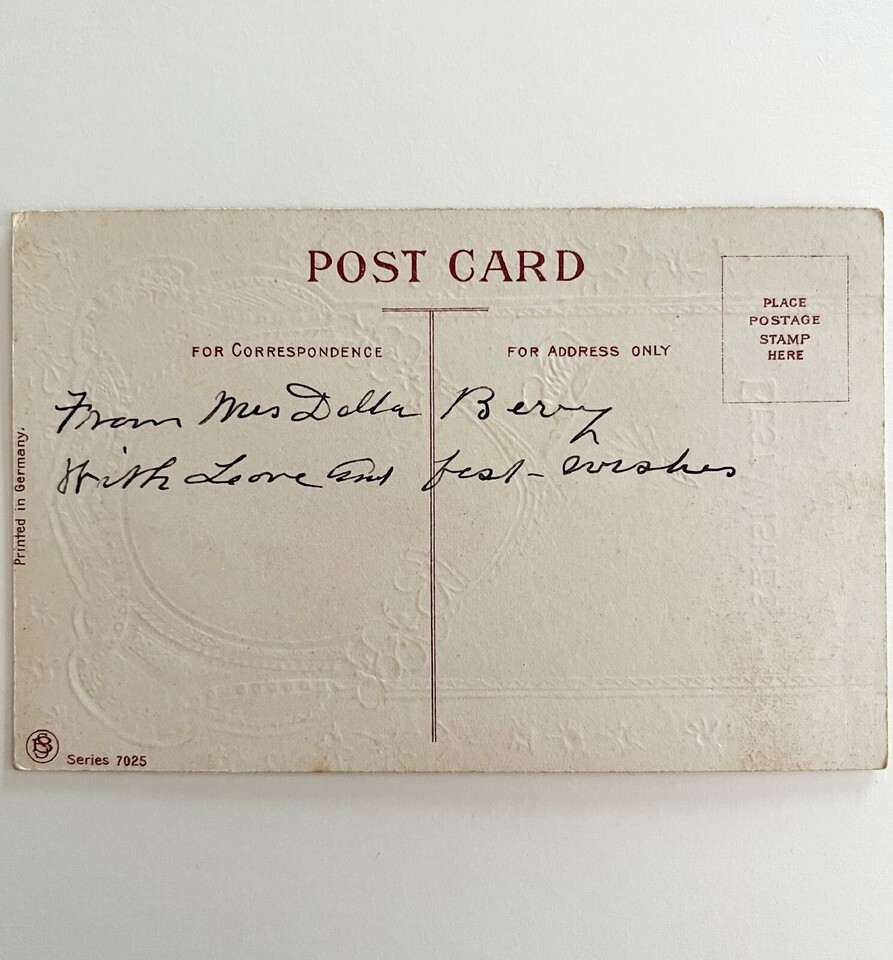 POST CARD
PLACE
POSTAGE
STAMP
HERE
FOR CORRESPONDENCE
FOR ADDRESS ONLY
From Mrs Della Berry
With Love and best-wishes
Printed in Germany.
BEST WISHES
Series 7025